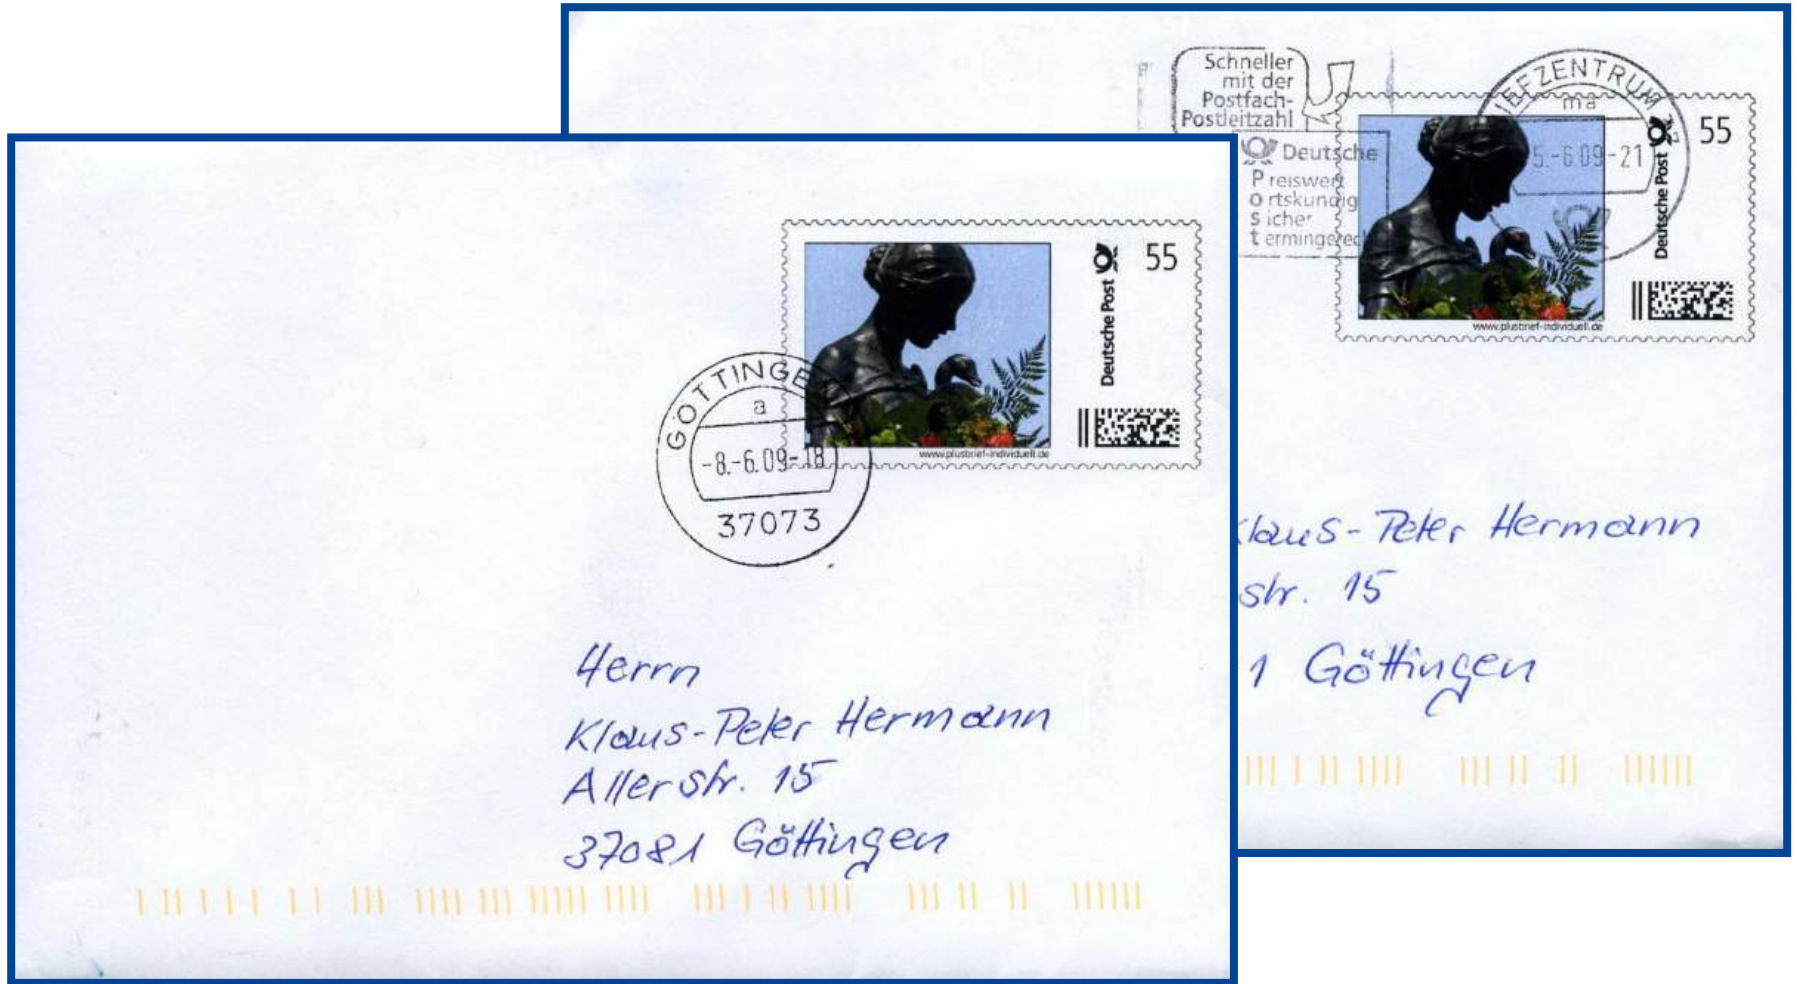 Schneller
mit der
Postfach-
Postleitzahl
Deutsche
Preiswert
ortskundig
sicher
termingerecht
BRIEFZENTRUM 37
ma
5.-6.09-21
Deutsche Post
55
www.plusbrief-individuell.de
Klaus-Peter Hermann
str. 15
1 Göttingen
GÖTTINGEN
a
-8.-6.09-18
37073
Deutsche Post
55
www.plusbrief-individuell.de
Herrn
Klaus-Peter Hermann
Allerstr. 15
37081 Göttingen